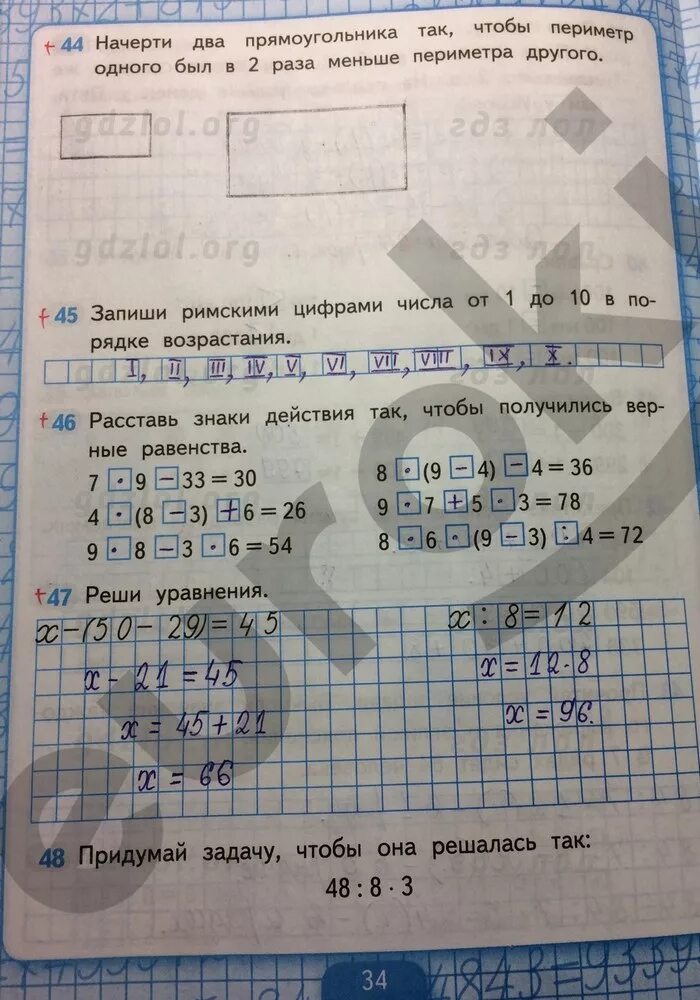 44 Начерти два прямоугольника так, чтобы периметр
одного был в 2 раза меньше периметра другого.
gdzlol.org гдз лол
gdzlol.org гдз лол
45 Запиши римскими цифрами числа от 1 до 10 в по-
рядке возрастания.
I, II, III, IV, V, VI, VII, VIII, IX, X.
46 Расставь знаки действия так, чтобы получились вер-
ные равенства.
7 · 9 − 33 = 30
4 · (8 − 3) + 6 = 26
9 · 8 − 3 · 6 = 54
8 · (9 − 4) − 4 = 36
9 · 7 + 5 · 3 = 78
8 · 6 · (9 − 3) : 4 = 72
47 Реши уравнения.
x − (50 − 29) = 45
x − 21 = 45
x = 45 + 21
x = 66
x : 8 = 12
x = 12 · 8
x = 96.
48 Придумай задачу, чтобы она решалась так:
48 : 8 · 3
34
euroki